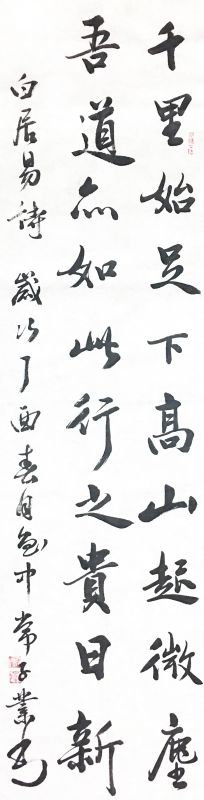 千里始足下高山起微塵
吾道亦如此行之貴日新
白居易詩 歲次丁酉春月於中常子業書